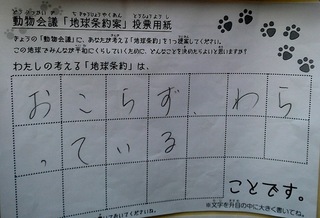 動物会議「地球条約案」投票用紙
きょうの「動物会議」に、あなたが考える「地球条約」を1つ提案してください。
この地球でみんなが平和にくらしていくために、どんなことを決めたらよいと思いますか?
わたしの考える「地球条約」は、
おこらず、わら
っている
ことです。
※文字を升目の中に大きく書いてね。